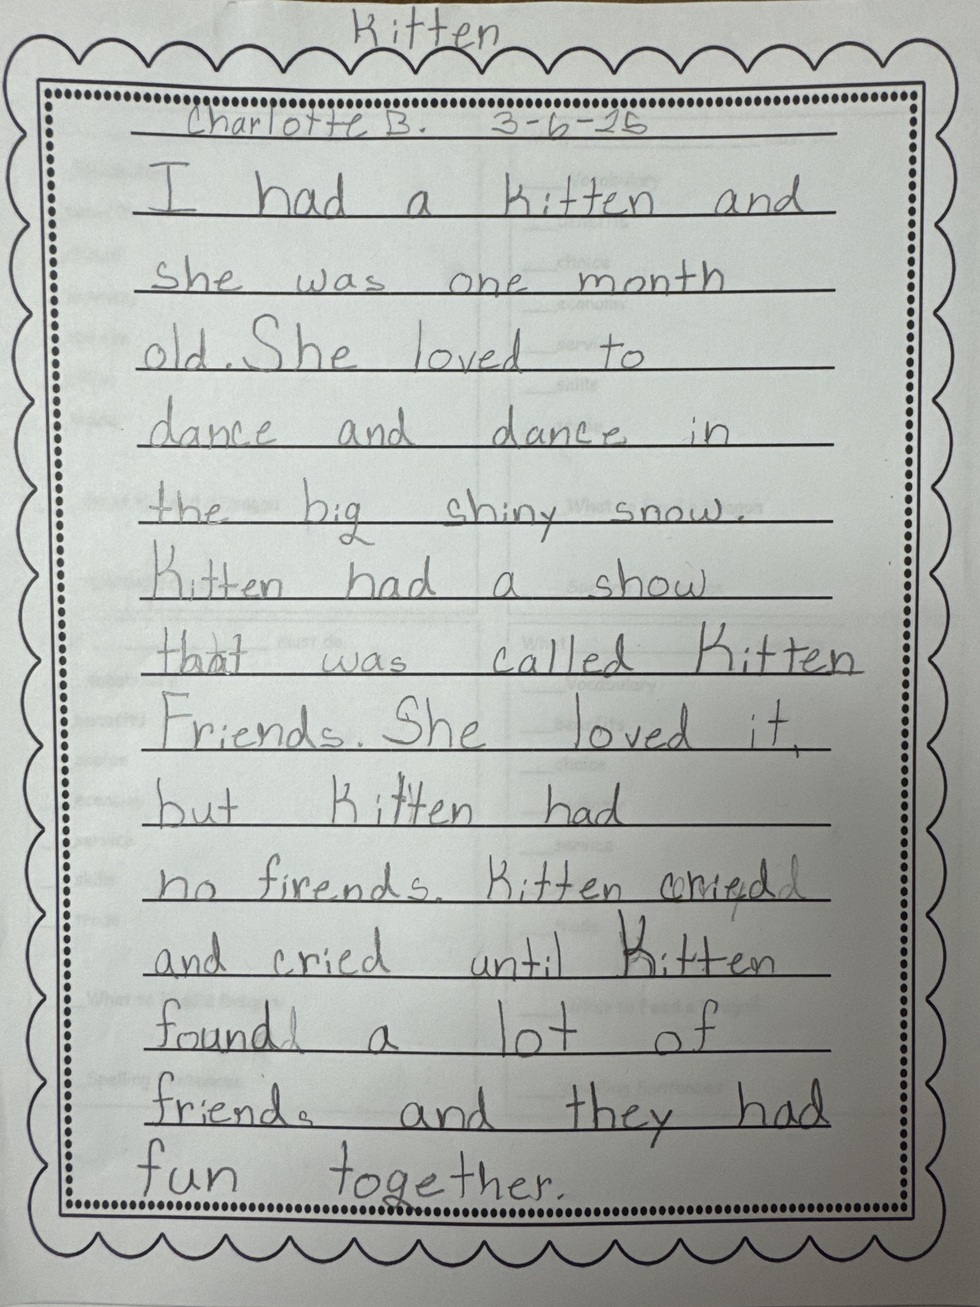 Kitten
Charlotte B. 3-6-25
I had a Kitten and
she was one month
old. She loved to
dance and dance in
the big shiny snow.
Kitten had a show
that was called Kitten
Friends. She loved it,
but Kitten had
no firends. Kitten cried
and cried until Kitten
found a lot of
friends and they had
fun together.